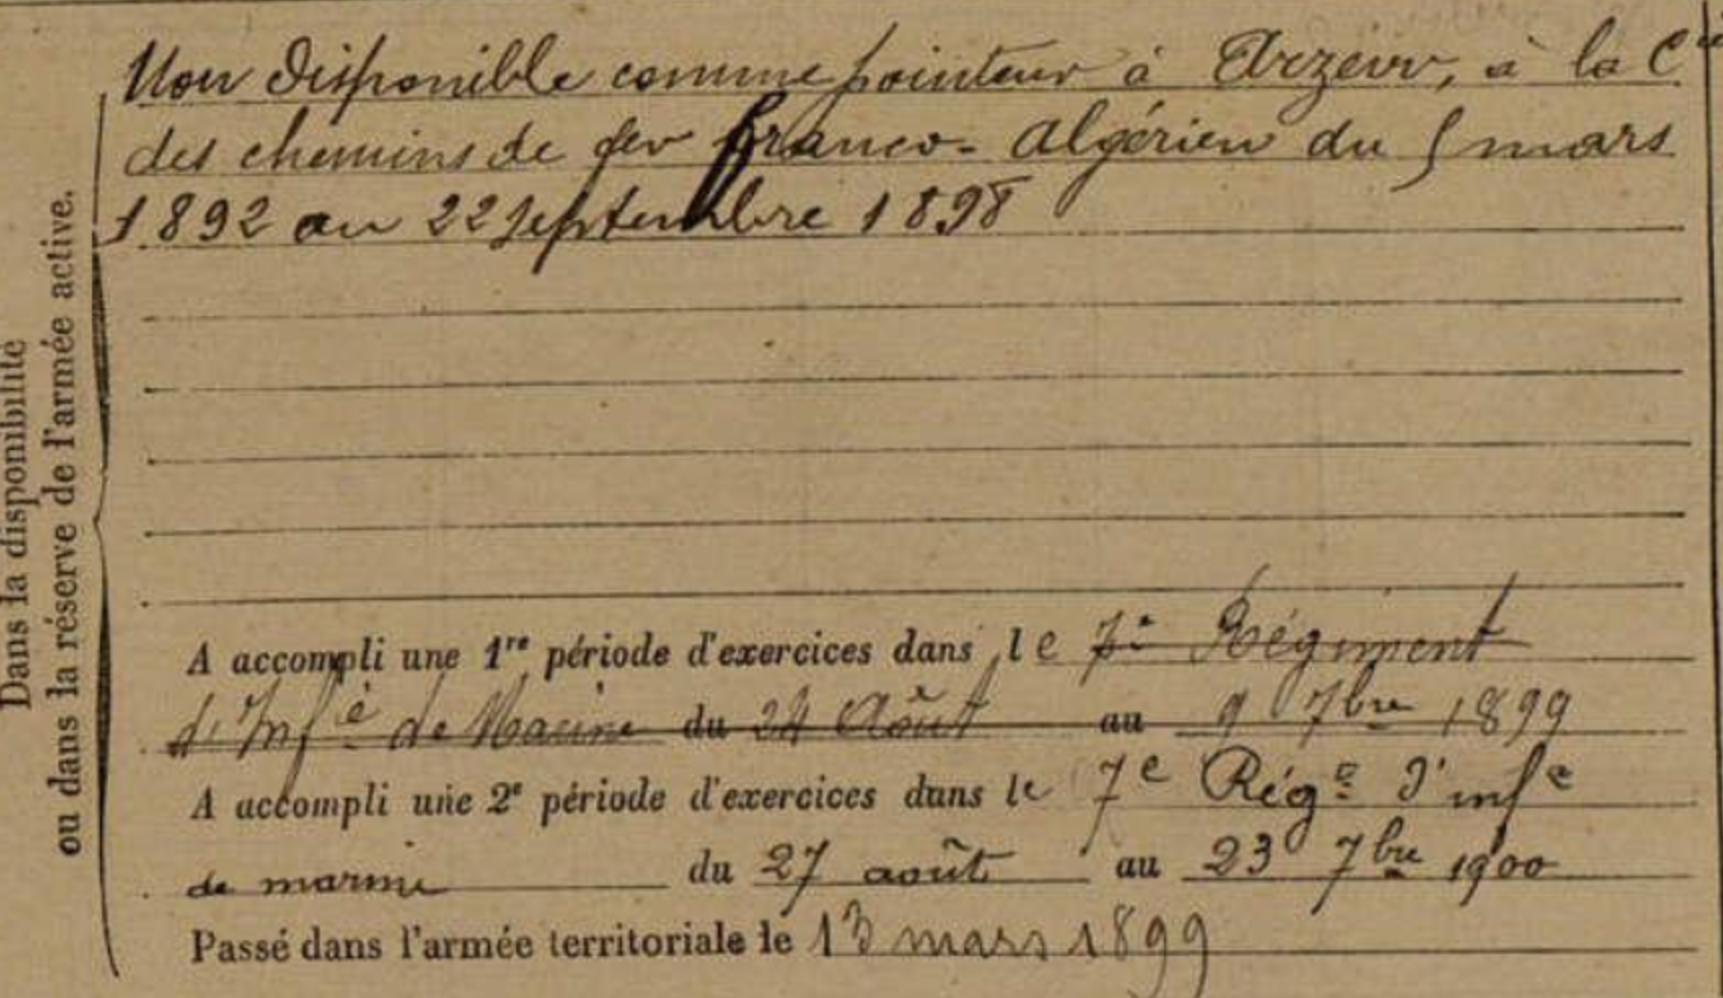 Dans la disponibilité
ou dans la réserve de l'armée active.
Non disponible comme pointeur à Arzew, à la Cie
des chemins de fer franco-Algérien du 5 mars
1892 au 22 septembre 1898
A accompli une 1re période d'exercices dans le 7e Régiment
d'Infie de Marine du 24 Août au 9 7bre 1899
A accompli une 2e période d'exercices dans le 7e Régt d'infie
de marine du 27 août au 23 7bre 1900
Passé dans l'armée territoriale le 13 mars 1899